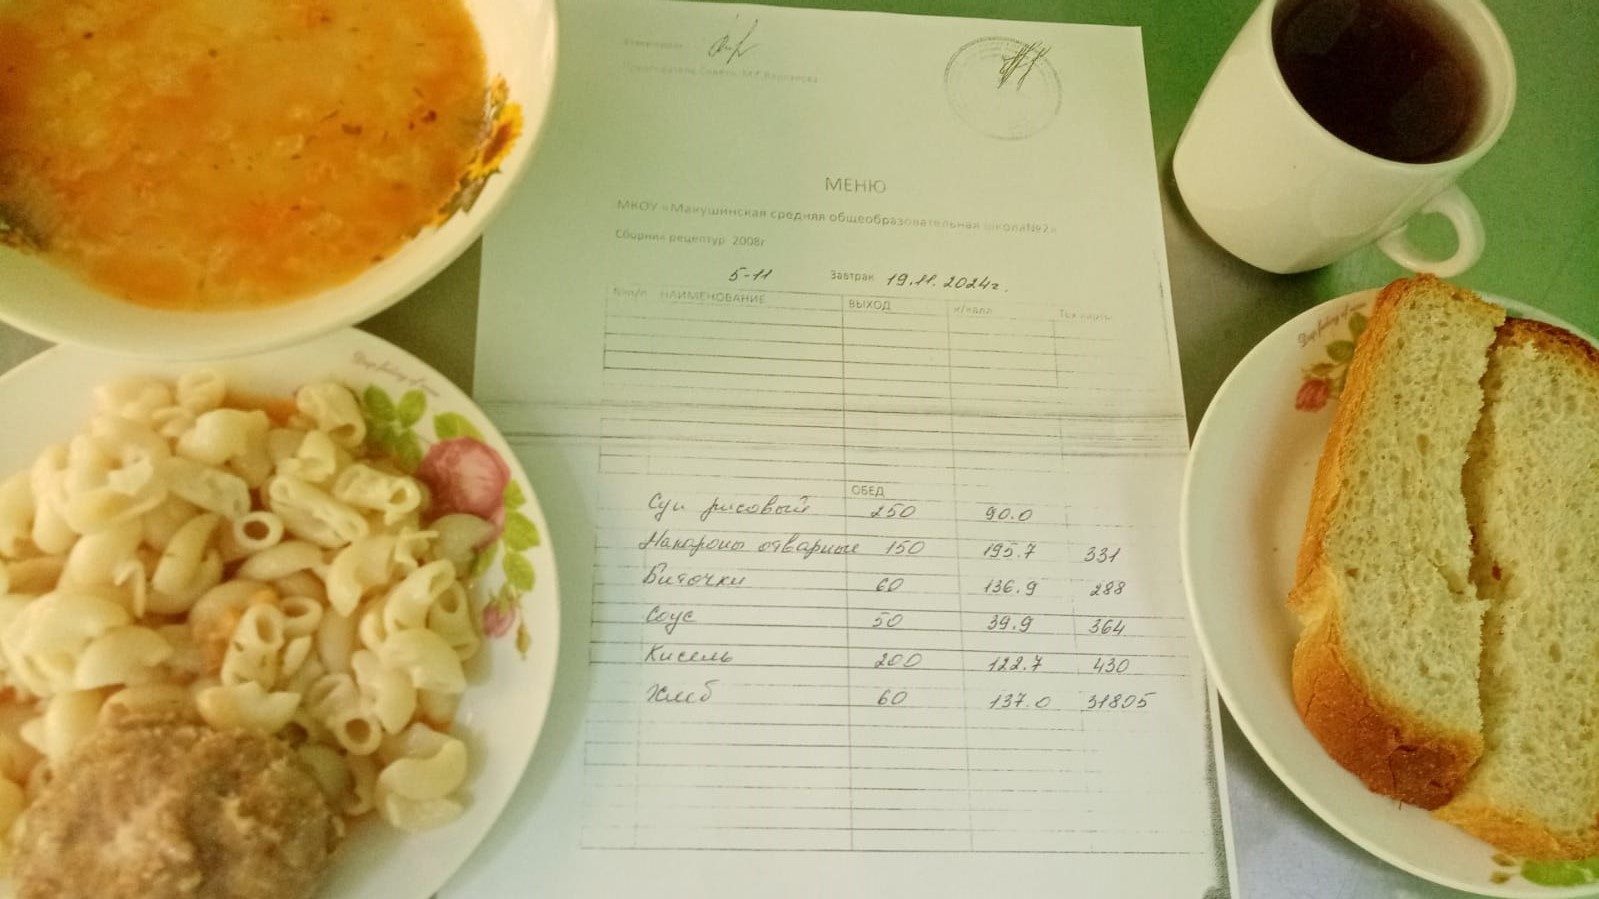 Председатель Совета
МЕНЮ
МКОУ «Макушинская средняя общеобразовательная школа№2»
Сборник рецептур 2008г
5-11 Завтрак 19.11.2024г.
№п/п НАИМЕНОВАНИЕ ВЫХОД к/кал Тех.карты
ОБЕД
Суп рисовый 250 90.0
Макароны отварные 150 195.7 331
Биточки 60 136.9 288
Соус 50 39.9 364
Кисель 200 122.7 430
Хлеб 60 137.0 31805